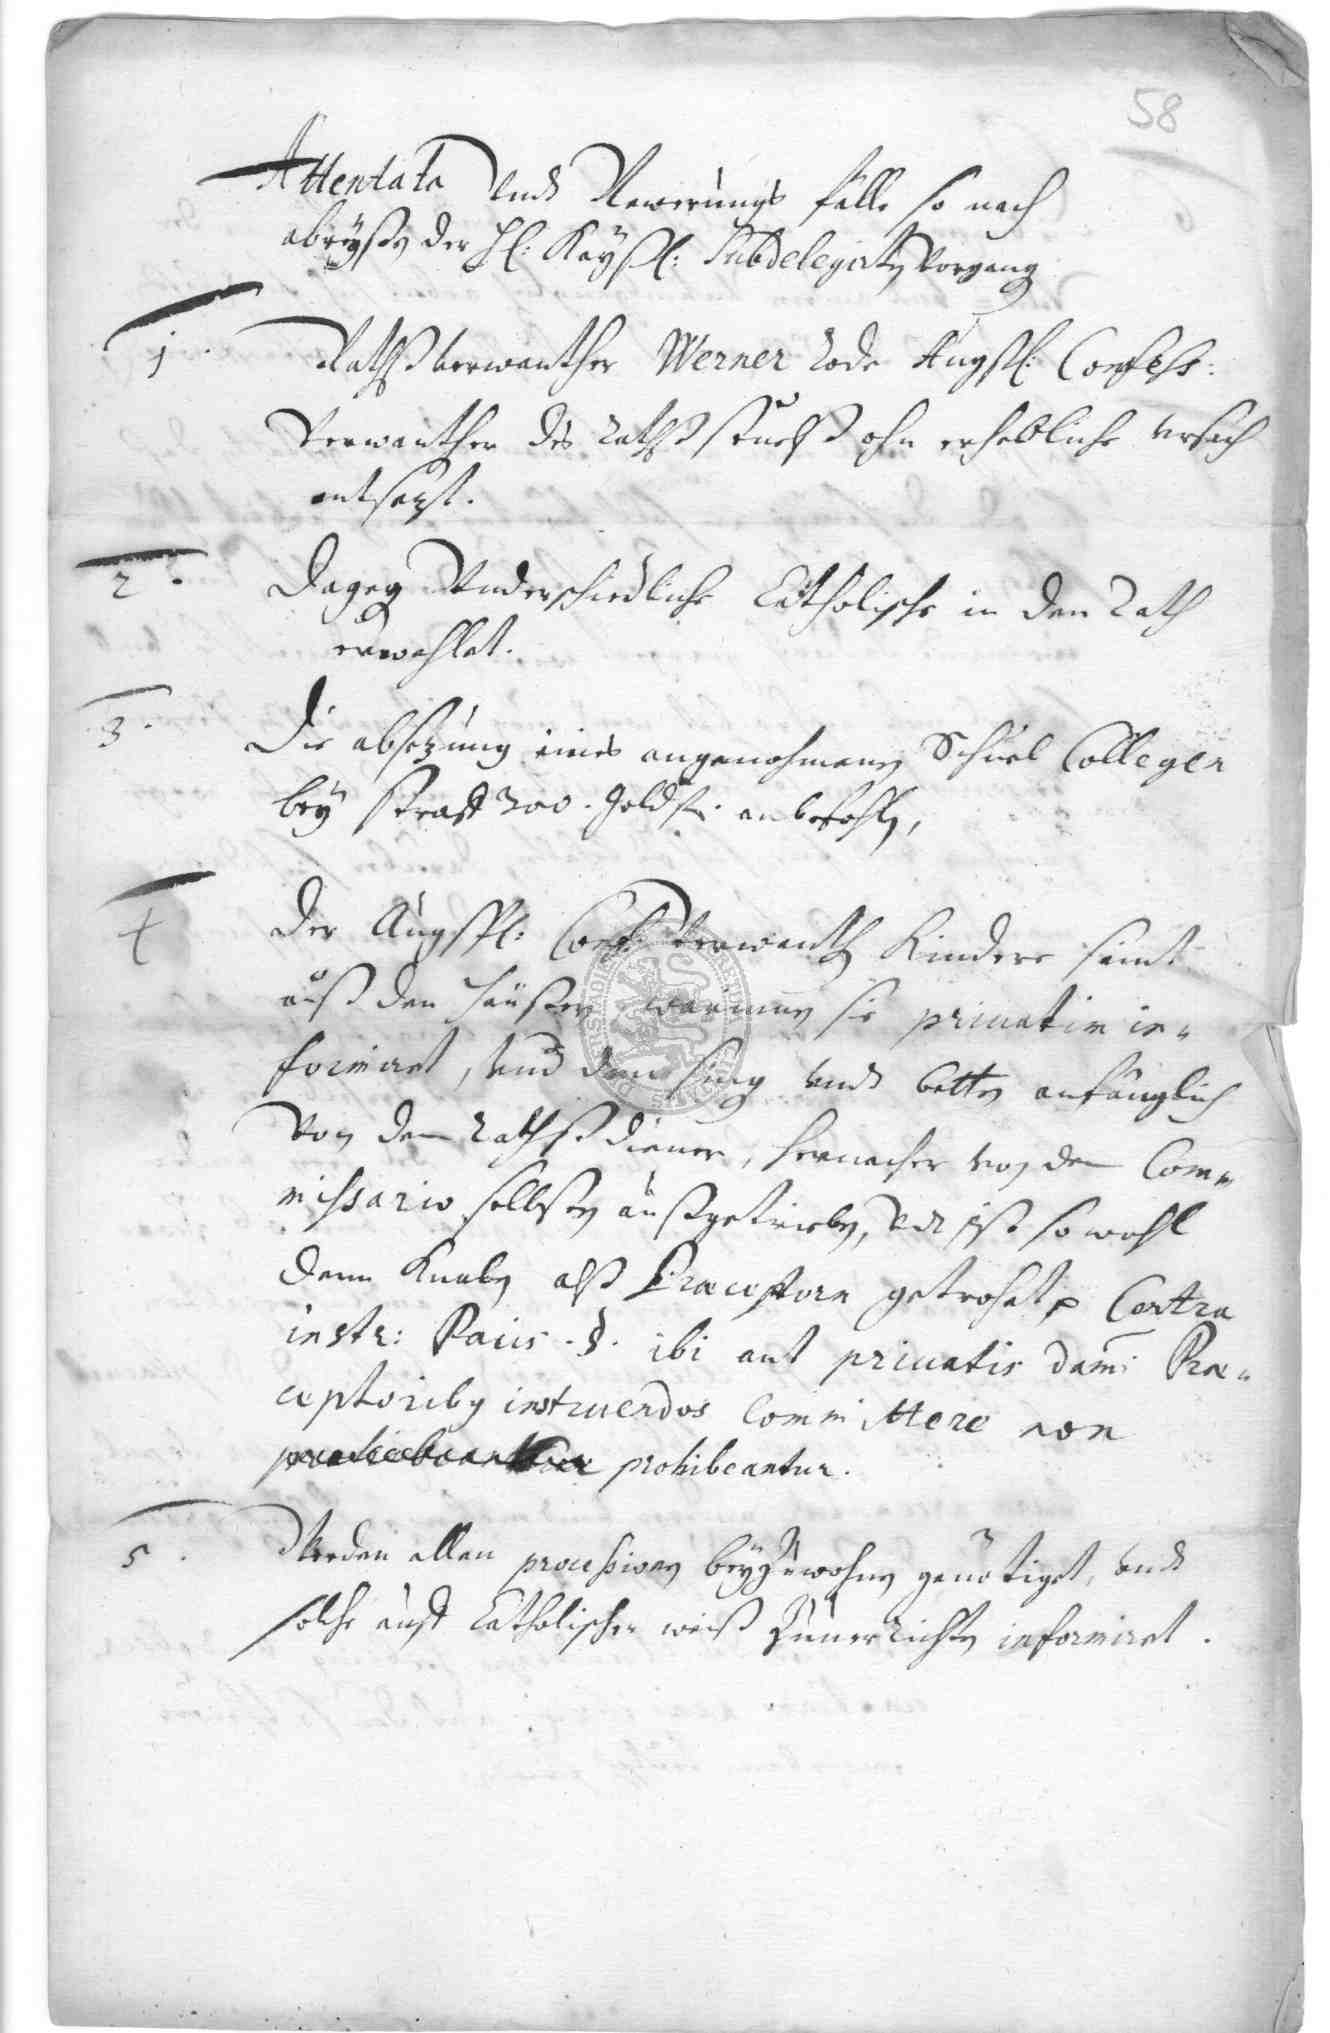 58
Attentata undt Newerungs fälle so nach
abreyßen der H: Kayßl: Subdelegirten vorgang
1. Rathßverwanther Werner Rode Augspl: Confess:
verwanther des Rathß stuelß ohn erhebliche ursach
entsezt.
2. Dagegen Underschiedliche Catholische in den Rath
erwehlet.
3. Die absetzung eines angenohmenen Schuel Collegen
bey straff 200. Goldfl: anbefohlen,
4 Der Augspl: Conf: verwanthen Kinder seind
auß den Häußern warinnen sie privatim in-
formiret, und dem sing undt betten anfänglich
von dem Rathßdiener, hernacher von dem Com-
missario selbsten außgetrieben, undt ist so wohl
denn Knaben alß Praeceptorn getrohet, Contra
instr: Pacis. §. ibi aut privatis domi Prae-
ceptoribus instruendos Committere non
prohibeantur.
5. Werden allen processionen beyzuwohnen genötiget, undt
solche auff Catholischer weiß zuuerrichten informiret.